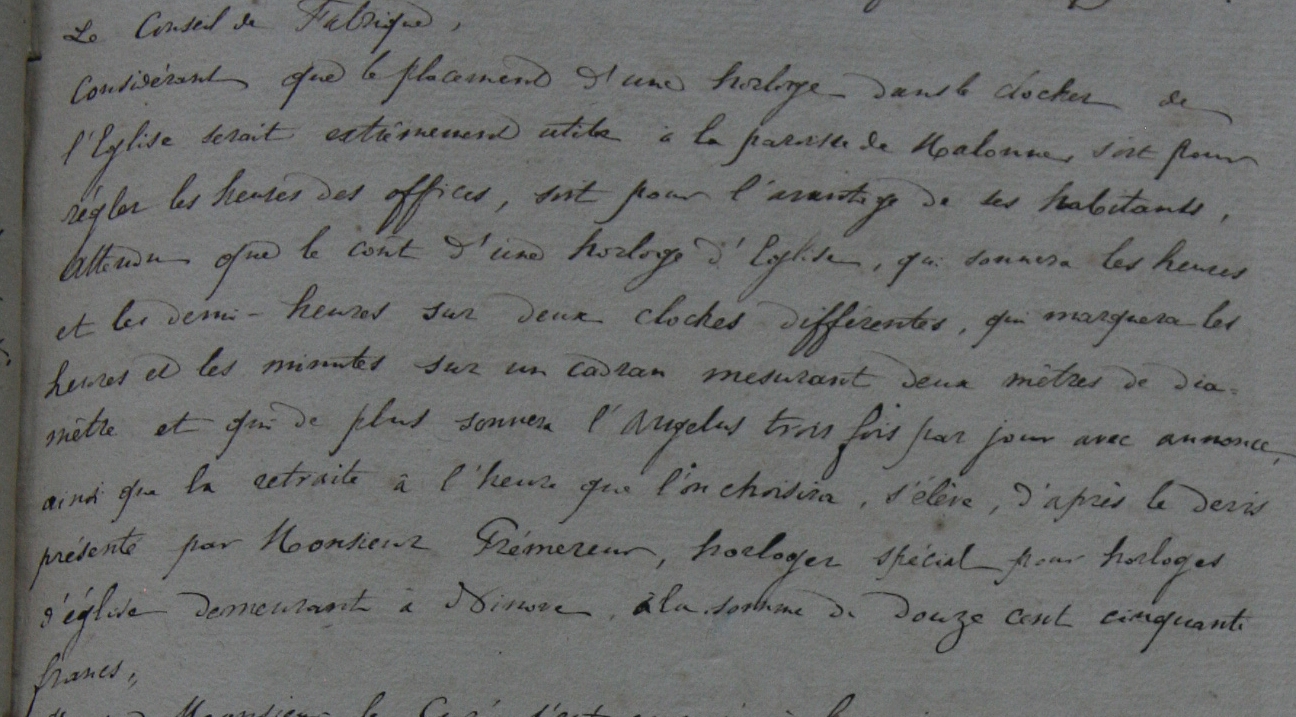 Le Conseil de Fabrique,
Considérant que le placement d'une horloge dans le clocher de
l'Eglise serait extrêmement utile à la paroisse de Malonne, soit pour
régler les heures des offices, soit pour l'avantage de ses habitants,
Attendu que le cout d'une horloge d'Eglise, qui sonnera les heures
et les demi-heures sur deux cloches différentes, qui marquera les
heures et les minutes sur un cadran mesurant deux mètres de dia-
mètre et qui de plus sonnera l'Angelus trois fois par jour avec annonce,
ainsi que la retraite à l'heure que l'on choisira, s'élève, d'après le devis
présenté par Monsieur horloger spécial pour horloges
d'église demeurant à Ninove à la somme de douze cent cinquante
francs,
Monsieur le Curé